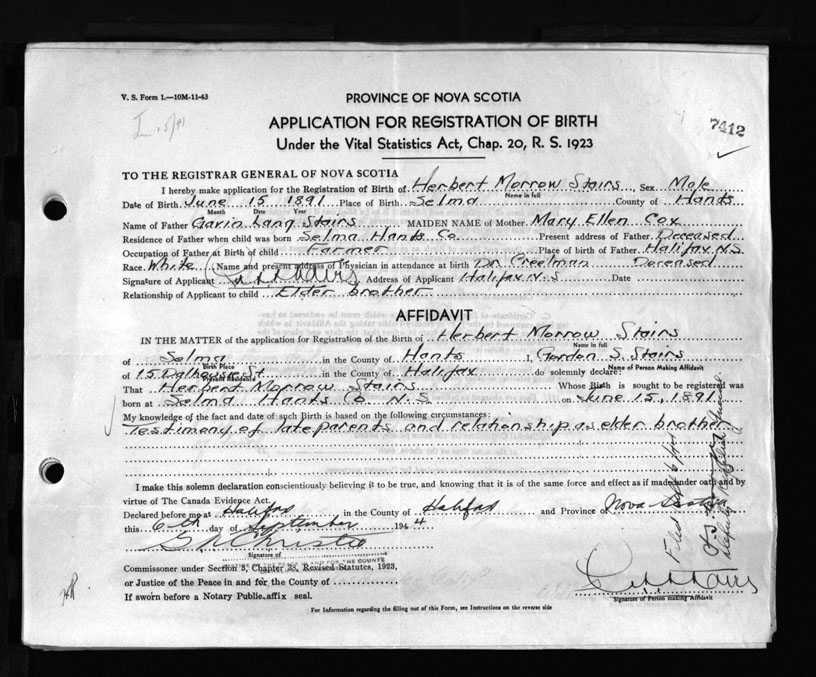 V. S. Form 1.—10M-11-43
PROVINCE OF NOVA SCOTIA
APPLICATION FOR REGISTRATION OF BIRTH
7412
Under the Vital Statistics Act, Chap. 20, R. S. 1923
TO THE REGISTRAR GENERAL OF NOVA SCOTIA
I hereby make application for the Registration of Birth of Herbert Morrow Stairs, Sex Male
Name in full
Date of Birth June 15 1891 Place of Birth Selma County of Hants
Month Date Year
Name of Father Gavin Lang Stairs MAIDEN NAME of Mother Mary Ellen Cox
Residence of Father when child was born Selma Hants Co Present address of Father Deceased
Occupation of Father at Birth of child Farmer Place of birth of Father Halifax N.S
Race White (Name and present address of Physician in attendance at birth Dr Creelman Deceased
Signature of Applicant Stairs Address of Applicant Halifax N.S Date
Relationship of Applicant to child Elder brother
AFFIDAVIT
IN THE MATTER of the application for Registration of the Birth of Herbert Morrow Stairs
Name in full
of Selma in the County of Hants I, Gordon S. Stairs
Birth Place Name of Person Making Affidavit
of 15 Dalhousie St in the County of Halifax do solemnly declare:
Present Residence
That Herbert Morrow Stairs Whose Birth is sought to be registered was
born at Selma Hants Co N.S on June 15, 1891
My knowledge of the fact and date of such Birth is based on the following circumstances:
Testimony of late parents and relationship as elder brother
I make this solemn declaration conscientiously believing it to be true, and knowing that it is of the same force and effect as if made under oath and by
virtue of The Canada Evidence Act.
Declared before me at Halifax in the County of Halifax and Province of Nova Scotia
this 6th day of September 1944
Christie
Signature of
Commissioner under Section 3, Chapter 33, Revised Statutes, 1923,
or Justice of the Peace in and for the County of
If sworn before a Notary Public, affix seal.
Stairs
Signature of Person making Affidavit
For Information regarding the filling out of this Form, see Instructions on the reverse side